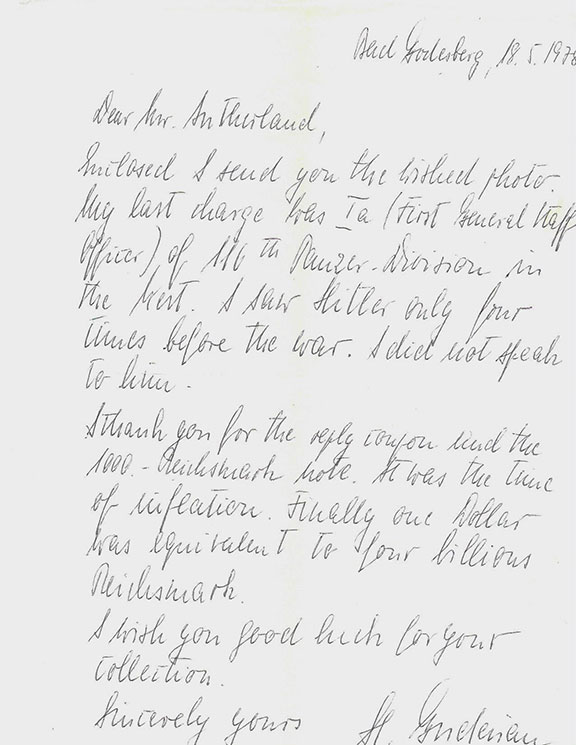 Bad Godesberg, 18.5.1978
Dear Mr. Sutherland,
Enclosed I send you the wished photo.
My last charge was Ia (First General Staff
Officer) of 116th Panzer-Division in
the West. I saw Hitler only four
times before the war. I did not speak
to him.
I thank you for the reply coupon und the
1000.- Reichsmark note. It was the time
of inflation. Finally one Dollar
was equivalent to four billions
Reichsmark.
I wish you good luck for your
collection.
Sincerely yours H. Guderian